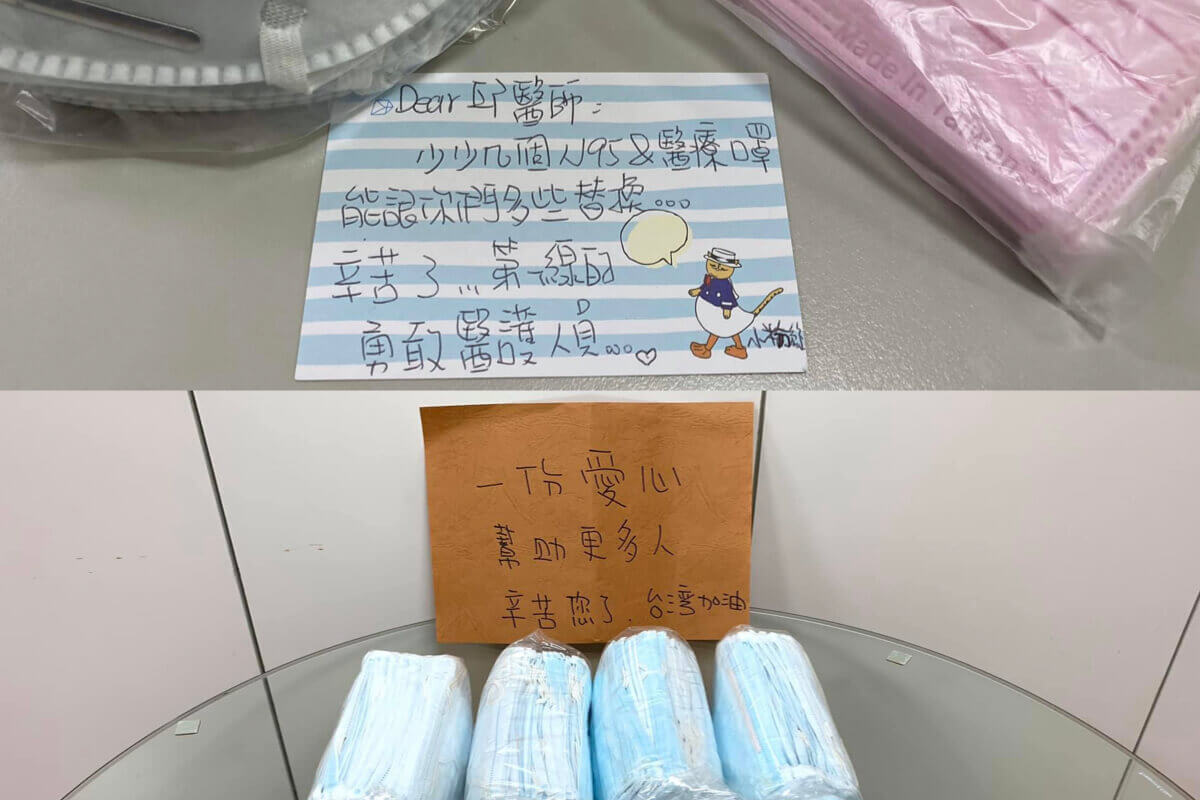 Dear 邱醫師：
少少几個N95&醫療口罩
能讓你們多些替換...
辛苦了...第一線的
勇敢醫護人員...♡
Made In Taiwan
一份愛心
幫助更多人
辛苦您了.台灣加油